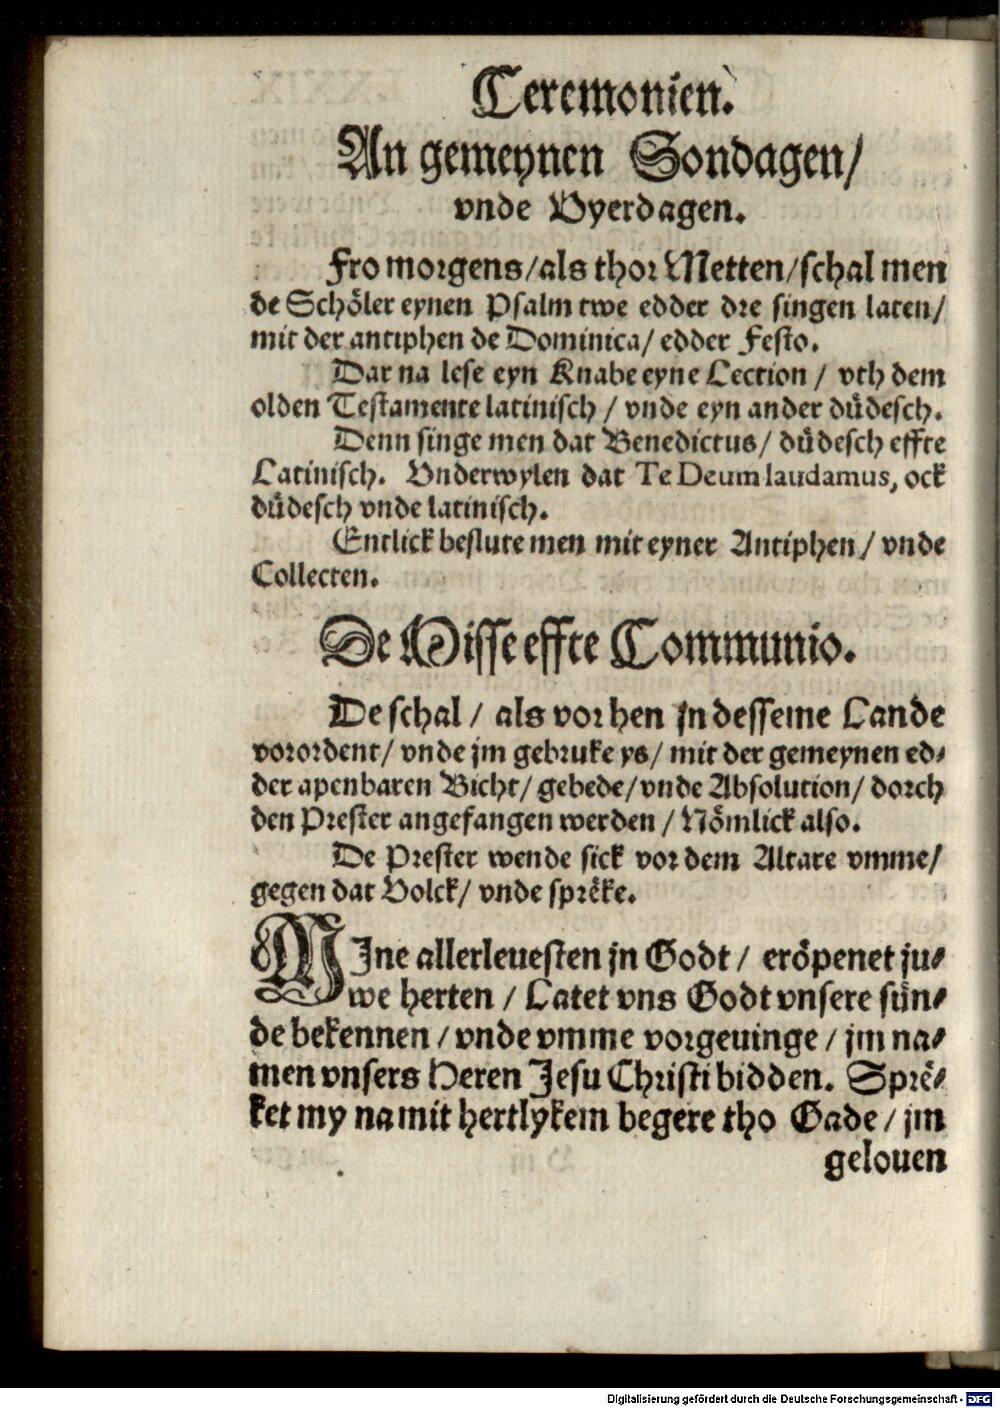 Ceremonien.
An gemeynen Sondagen/
vnde Vyerdagen.
Fro morgens/als thor Metten/schal men
de Schöler eynen Psalm twe edder dre singen laten/
mit der antiphen de Dominica/ edder Festo.
Dar na lese eyn Knabe eyne Lection / vth dem
olden Testamente latinisch / vnde eyn ander düdesch.
Denn singe men dat Benedictus/ düdesch effte
Latinisch. Vnderwylen dat Te Deum laudamus, ock
düdesch vnde latinisch.
Entlick beslute men mit eyner Antiphen / vnde
Collecten.
De Misse effte Communio.
De schal / als vor hen jn desseme Lande
vorordent/ vnde jm gebruke ys/ mit der gemeynen ed⸗
der apenbaren Bicht/ gebede/ vnde Absolution/ dorch
den Prester angefangen werden / Nömlick also.
De Prester wende sick vor dem Altare vmme/
gegen dat Volck/ vnde spreͤke.
MIne allerleuesten jn Godt / eröpenet ju⸗
we herten / Latet vns Godt vnsere sün⸗
de bekennen / vnde vmme vorgeuinge / jm na⸗
men vnsers Heren Jesu Christi bidden. Spreͤ⸗
ket my na mit hertlykem begere tho Gade / jm
gelouen
Digitalisierung gefördert durch die Deutsche Forschungsgemeinschaft - DFG